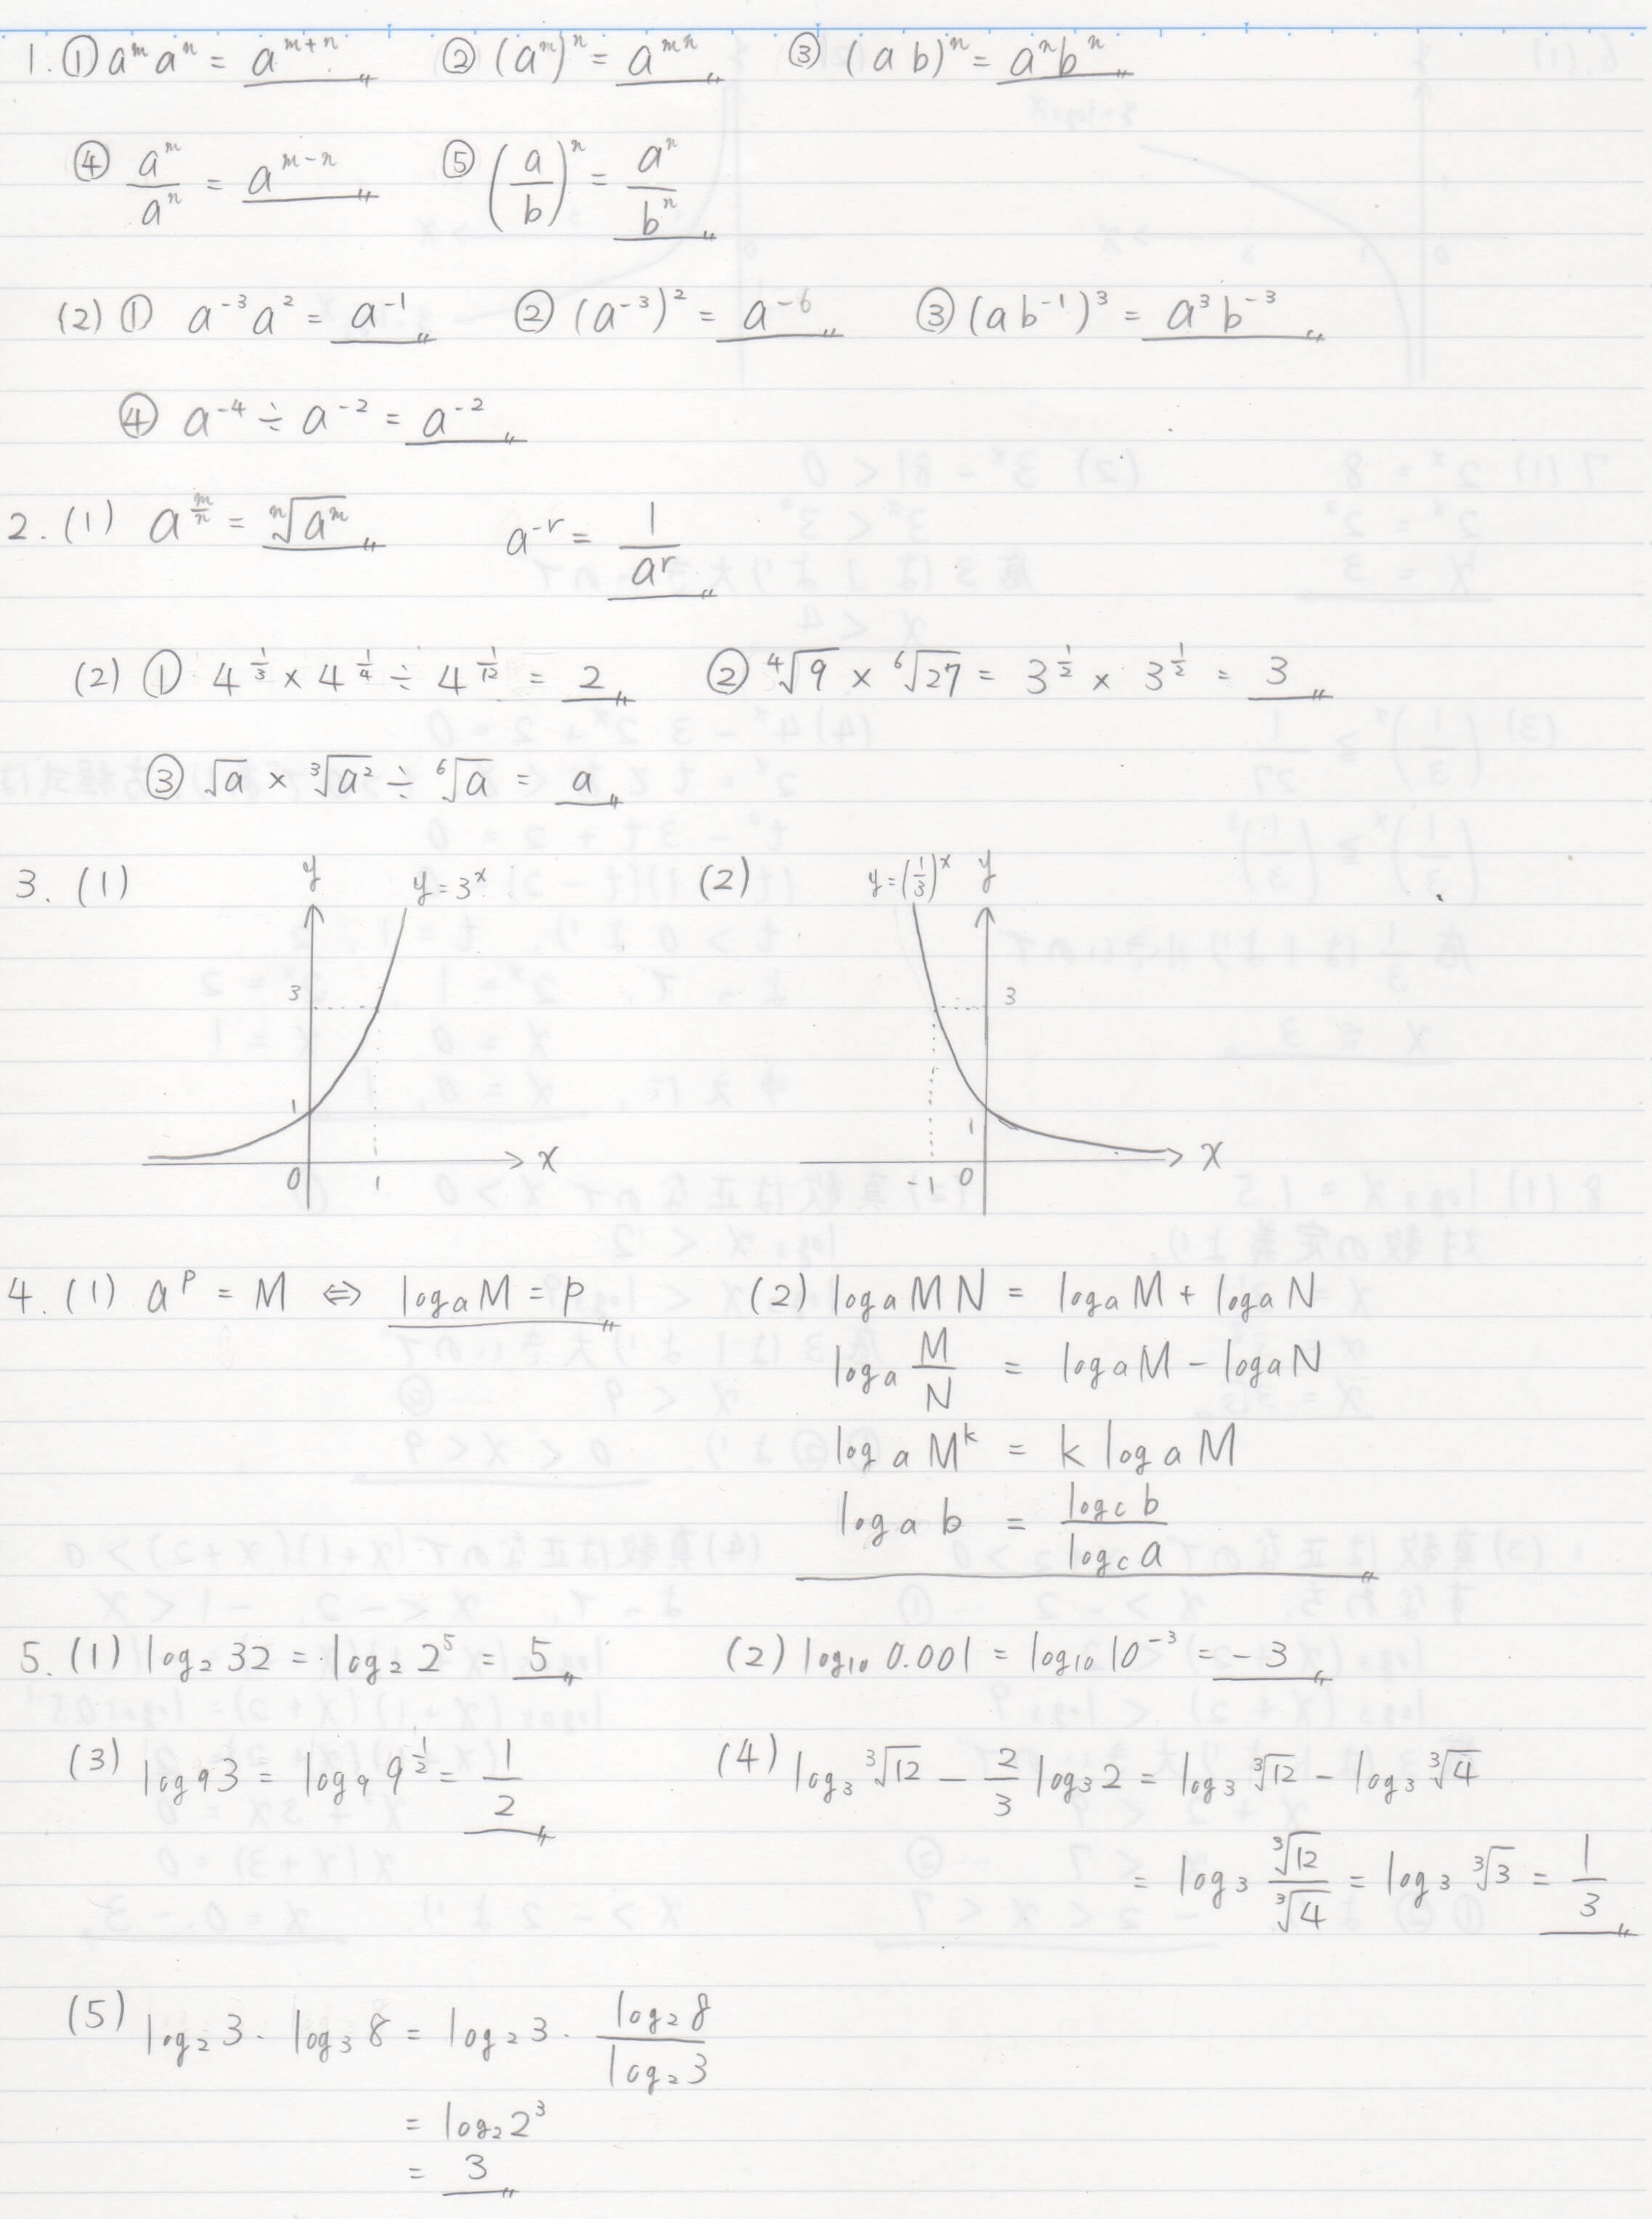 1. ① aᵐaⁿ = aᵐ⁺ⁿ ② (aᵐ)ⁿ = aᵐⁿ ③ (ab)ⁿ = aⁿbⁿ
④ aᵐ/aⁿ = aᵐ⁻ⁿ ⑤ (a/b)ⁿ = aⁿ/bⁿ
(2) ① a⁻³a² = a⁻¹ ② (a⁻³)² = a⁻⁶ ③ (ab⁻¹)³ = a³b⁻³
④ a⁻⁴ ÷ a⁻² = a⁻²
2. (1) a^(m/n) = ⁿ√(aᵐ) a⁻ʳ = 1/aʳ
(2) ① 4^(1/3) × 4^(1/4) ÷ 4^(1/12) = 2 ② ⁴√9 × ⁶√27 = 3^(1/2) × 3^(1/2) = 3
③ √a × ³√(a²) ÷ ⁶√a = a
3. (1) y y = 3ˣ (2) y = (1/3)ˣ y
3 3
1 1
0 1 x -1 0 x
4. (1) aᵖ = M ⇔ logₐM = p (2) logₐMN = logₐM + logₐN
logₐ(M/N) = logₐM − logₐN
logₐMᵏ = k logₐM
logₐb = log_c b / log_c a
5. (1) log₂32 = log₂2⁵ = 5 (2) log₁₀0.001 = log₁₀10⁻³ = −3
(3) log₉3 = log₉9^(1/2) = 1/2 (4) log₃³√12 − (2/3)log₃2 = log₃³√12 − log₃³√4
= log₃(³√12/³√4) = log₃³√3 = 1/3
(5) log₂3 · log₃8 = log₂3 · log₂8/log₂3
= log₂2³
= 3